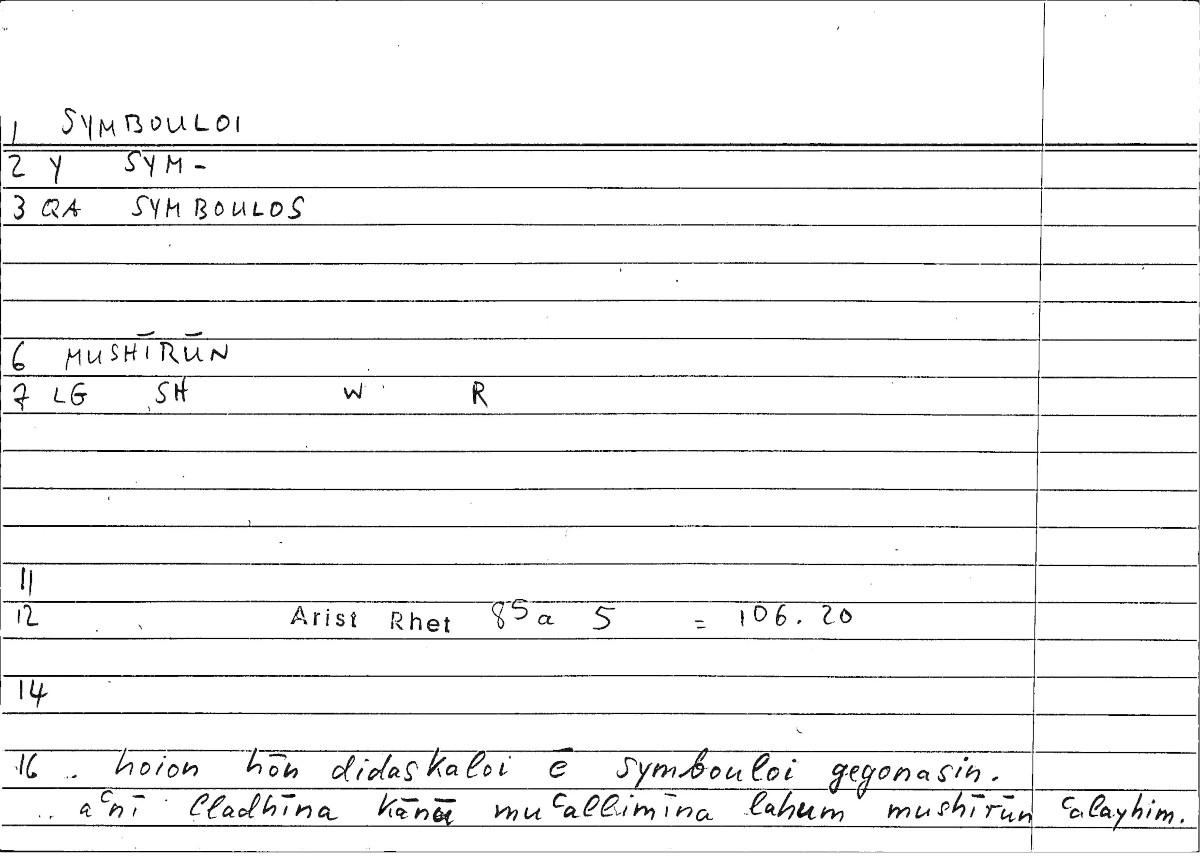 1 SYMBOULOI
2 Y SYM-
3 QA SYMBOULOS
6 MUSHĪRŪN
7 LG SH W R
11
12 Arist Rhet 85a 5 = 106.20
14
16 .. hoion hōn didaskaloi ē symbouloi gegonasin.
.. aᶜnī lladhīna kānū muᶜallimīna lahum mushīrūn ᶜalayhim.